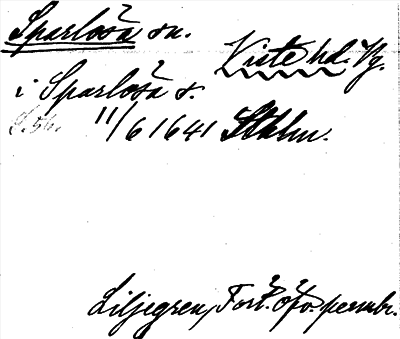 Sparlösa sn.
Viste hd. Vg.
i Sparlösa s.
11/6 1641 Sthlm.
Liljegren, Fort. öfv. permbr.